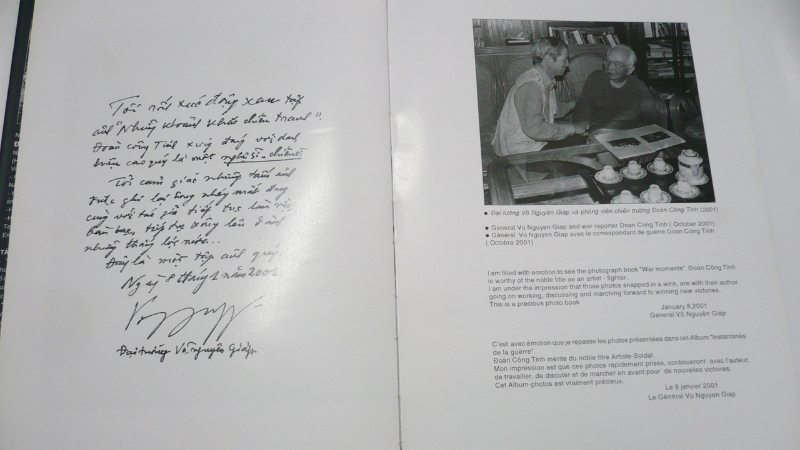 Tôi rất xúc động xem tập
ảnh "Những khoảnh khắc chiến tranh".
Đoàn Công Tính xứng đáng với danh
hiệu cao quý là một nghệ sĩ - chiến sĩ
Tôi cảm giác những tấm ảnh
được ghi lại trong nháy mắt đang
cùng với tác giả tiếp tục làm việc,
bàn bạc, tiếp tục xông lên giành
những thắng lợi mới.
Đây là một tập ảnh quý.
Ngày 8 tháng 1 năm 2001
Đại tướng Võ Nguyên Giáp
• Đại tướng Võ Nguyên Giáp và phóng viên chiến trường Đoàn Công Tính (2001)
• General Vo Nguyen Giap and war reporter Doan Cong Tinh ( October 2001)
• Général Vo Nguyen Giap avec le correspondant de guerre Doan Cong Tinh
( Octobre 2001)
I am filled with emotion to see the photograph book "War moments". Đoàn Công Tính
is worthy of the noble title as an artist - fighter.
I am under the impression that those photos snapped in a wink, are with their author
going on working, discussing and marching forward to winning new victories.
This is a precious photo book
January 8,2001
General Võ Nguyên Giáp
C'est avec émotion que je repasse les photos présentées dans cet Album "Instantanés
de la guerre".
Đoàn Công Tính mérite du noble titre Artiste-Soldat.
Mon impression est que ces photos rapidement prises, continueront avec l'auteur,
de travailler, de discuter et de marcher en avant pour de nouvelles victoires.
Cet Album-photos est vraiment précieux.
Le 8 janvier 2001
Le Général Vo Nguyen Giap